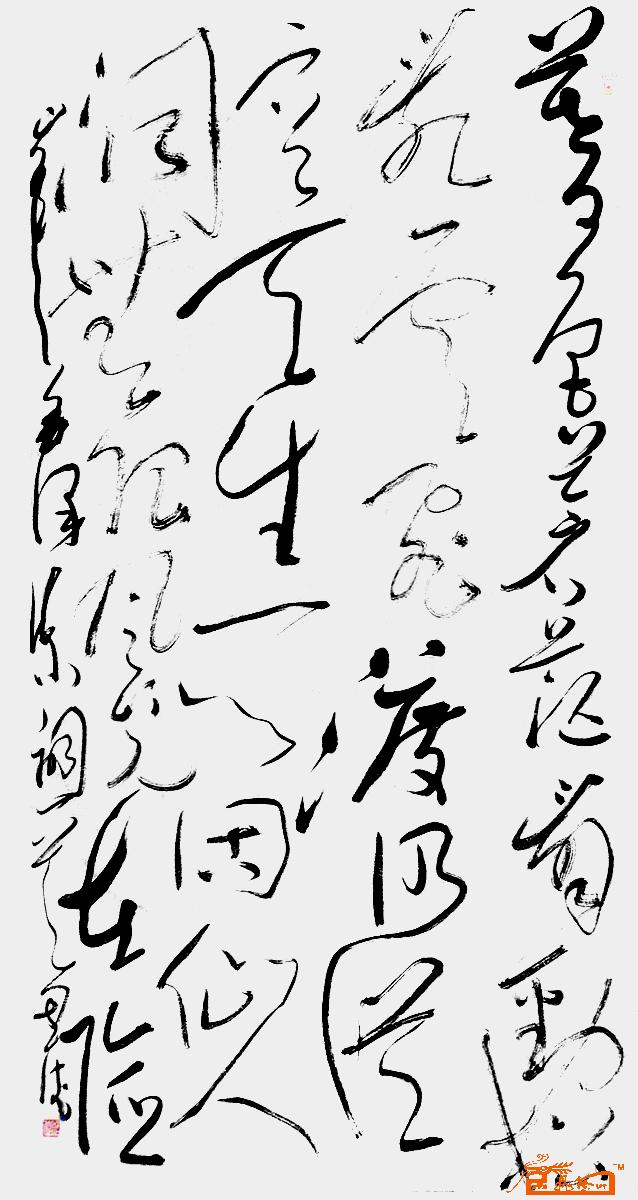 暮色苍茫看劲松
乱云飞渡仍从
容天生一个仙人
洞无限风光在险
峰毛泽东词一首